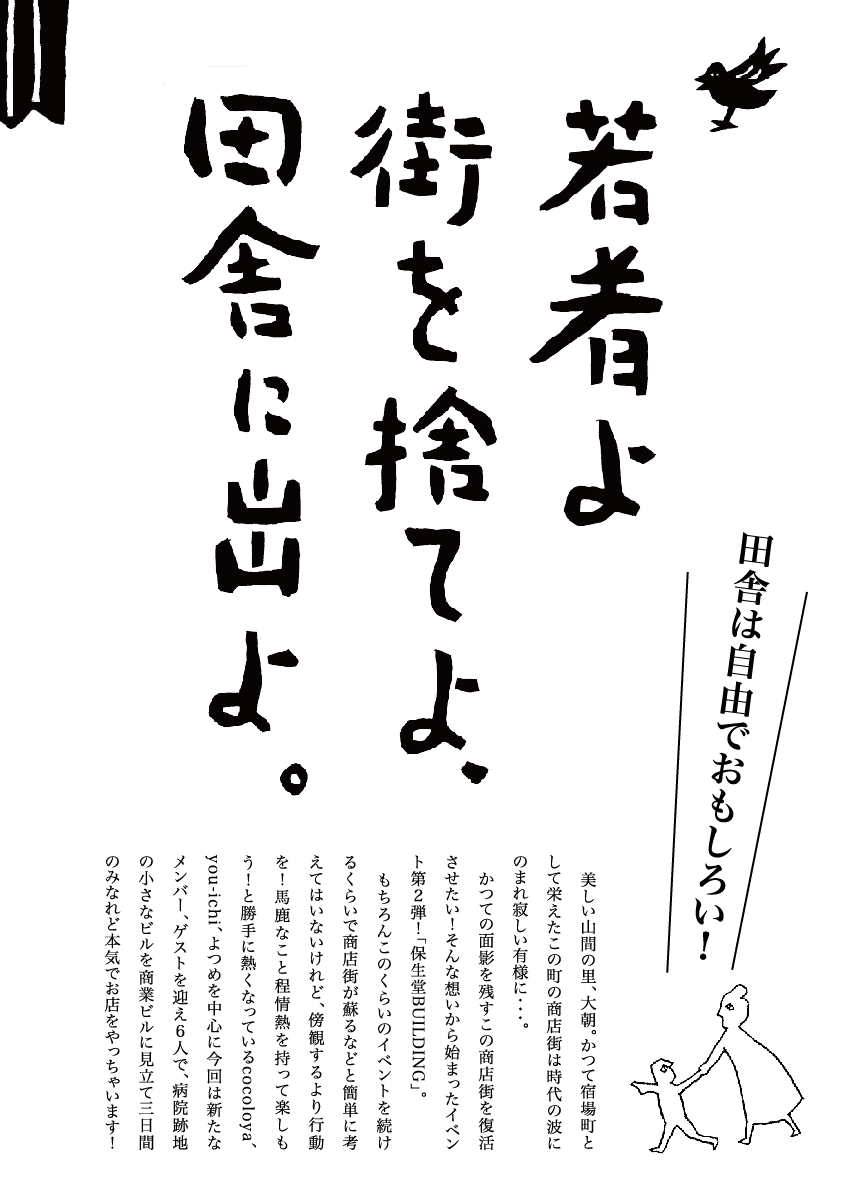 若者よ
街を捨てよ、
田舎に出よ。
田舎は自由でおもしろい！
美しい山間の里、大朝。かつて宿場町と
して栄えたこの町の商店街は時代の波に
のまれ寂しい有様に・・・。
かつての面影を残すこの商店街を復活
させたい！そんな想いから始まったイベン
ト第２弾！「保生堂BUILDING」。
もちろんこのくらいのイベントを続け
るくらいで商店街が蘇るなどと簡単に考
えてはいないけれど、傍観するより行動
を！馬鹿なこと程情熱を持って楽しも
う！と勝手に熱くなっているcocoloya、
you-ichi、よつめを中心に今回は新たな
メンバー、ゲストを迎え６人で、病院跡地
の小さなビルを商業ビルに見立て三日間
のみなれど本気でお店をやっちゃいます！